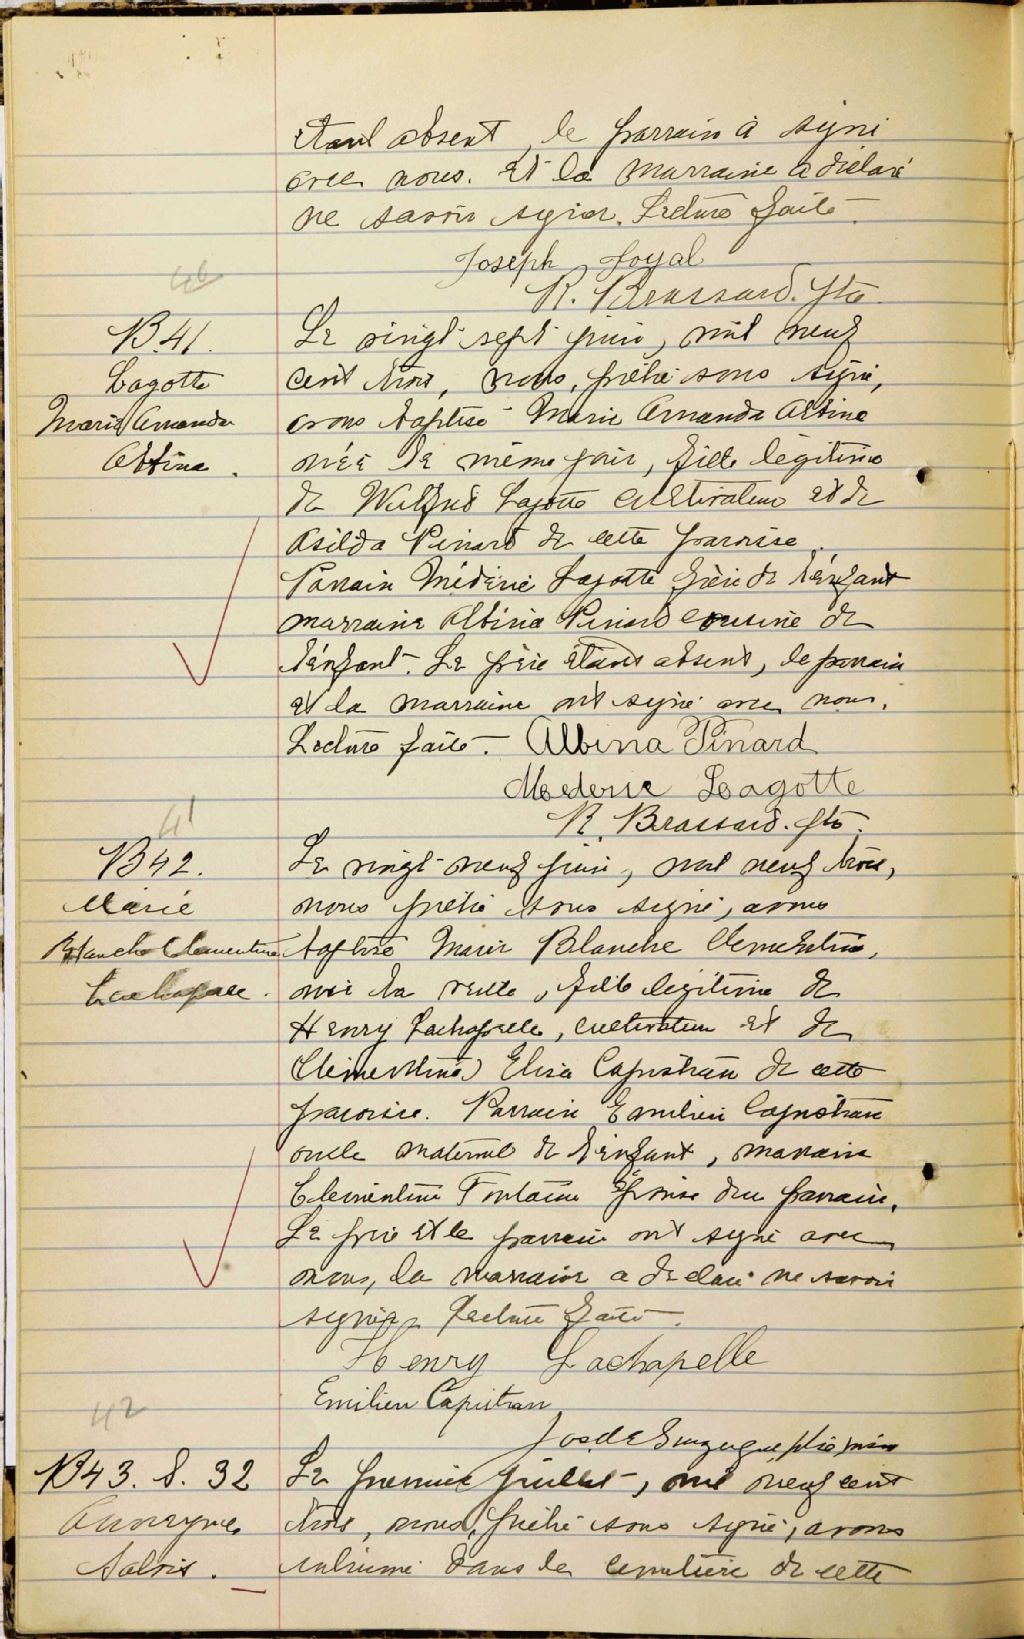 étant absent, le parrain a signé
avec nous. Et la marraine a déclaré
ne savoir signer. Lecture faite.
Joseph Joyal
R. Brassard. Ptre.
46
B.41.
Lagotte
Marie Amanda
Albina.
Le vingt sept juin, mil neuf
cent trois, nous, prêtre sous signé,
avons baptisé Marie Amanda Albina
née le même jour, fille légitime
de Wilfrid Lagotte cultivateur et de
Asilda Pinard de cette paroisse.
Parrain Médéric Lagotte frère de l'enfant
marraine Albina Pinard cousine de
l'enfant. Le père étant absent, le parrain
et la marraine ont signé avec nous.
Lecture faite. Albina Pinard
Mederic Lagotte
R. Brassard. Ptre.
41
B42.
Marie
Blanche Clementine
Lachapelle.
Le vingt-neuf juin, mil neuf trois,
nous prêtre sous signé, avons
baptisé Marie Blanche Clementine,
née la veille, fille légitime de
Henry Lachapelle, cultivateur et de
(Clementine) Elisa Capistran de cette
paroisse. Parrain Emilien Capistran
oncle maternel de l'enfant, marraine
Clementine Fontaine épouse du parrain.
Le père et le parrain ont signé avec
nous, la marraine a déclaré ne savoir
signer. Lecture faite.
Henry Lachapelle
Emilien Capistran
Jos de ptre
42
B43. S. 32
Anonyme
Salois.
Le premier juillet, mil neuf cent
trois, nous, prêtre sous signé, avons
inhumé dans le cimetière de cette